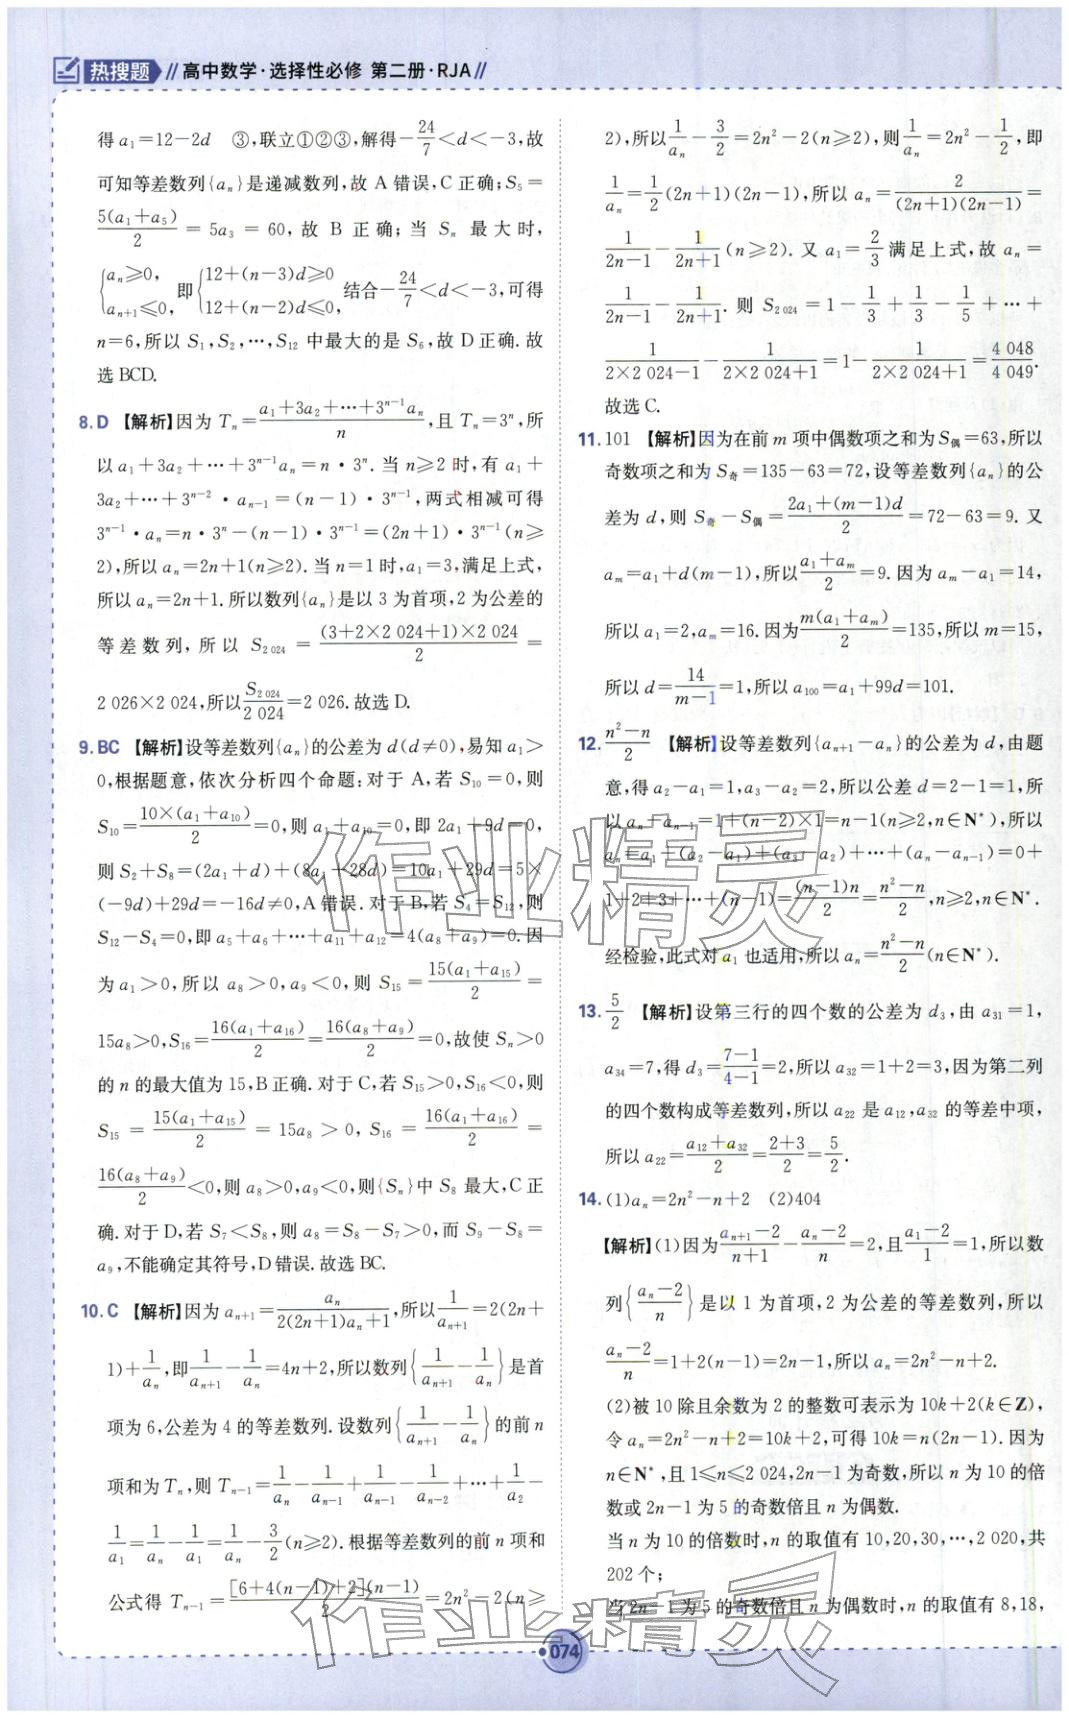 热搜题 // 高中数学·选择性必修 第二册·RJA //
得 a₁=12-2d ③,联立①②③,解得-24/7<d<-3,故
可知等差数列{aₙ}是递减数列,故 A 错误,C 正确;S₅=
5(a₁+a₅)/2=5a₃=60,故 B 正确;当 Sₙ 最大时,
{aₙ≥0, aₙ₊₁≤0, 即{12+(n-3)d≥0 12+(n-2)d≤0, 结合-24/7<d<-3,可得
n=6,所以 S₁,S₂,…,S₁₂ 中最大的是 S₆,故 D 正确.故
选 BCD.
8.D 【解析】因为 Tₙ=(a₁+3a₂+…+3ⁿ⁻¹aₙ)/n,且 Tₙ=3ⁿ,所
以 a₁+3a₂+…+3ⁿ⁻¹aₙ=n·3ⁿ.当 n≥2 时,有 a₁+
3a₂+…+3ⁿ⁻²·aₙ₋₁=(n-1)·3ⁿ⁻¹,两式相减可得
3ⁿ⁻¹·aₙ=n·3ⁿ-(n-1)·3ⁿ⁻¹=(2n+1)·3ⁿ⁻¹(n≥
2),所以 aₙ=2n+1(n≥2).当 n=1 时,a₁=3,满足上式,
所以 aₙ=2n+1.所以数列{aₙ}是以 3 为首项,2 为公差的
等差数列,所以 S₂₀₂₄=(3+2×2 024+1)×2 024/2=
2 026×2 024,所以S₂₀₂₄/2 024=2 026.故选 D.
9.BC 【解析】设等差数列{aₙ}的公差为 d(d≠0),易知 a₁>
0,根据题意,依次分析四个命题:对于 A,若 S₁₀=0,则
S₁₀=10×(a₁+a₁₀)/2=0,则 a₁+a₁₀=0,即 2a₁+9d=0,
则 S₂+S₈=(2a₁+d)+(8a₁+28d)=10a₁+29d=5×
(-9d)+29d=-16d≠0,A 错误.对于 B,若 S₄=S₁₂,则
S₁₂-S₄=0,即 a₅+a₆+…+a₁₁+a₁₂=4(a₈+a₉)=0.因
为 a₁>0,所以 a₈>0,a₉<0,则 S₁₅=15(a₁+a₁₅)/2=
15a₈>0,S₁₆=16(a₁+a₁₆)/2=16(a₈+a₉)/2=0,故使 Sₙ>0
的 n 的最大值为 15,B 正确.对于 C,若 S₁₅>0,S₁₆<0,则
S₁₅=15(a₁+a₁₅)/2=15a₈>0,S₁₆=16(a₁+a₁₆)/2=
16(a₈+a₉)/2<0,则 a₈>0,a₉<0,则{Sₙ}中 S₈ 最大,C 正
确.对于 D,若 S₇<S₈,则 a₈=S₈-S₇>0,而 S₉-S₈=
a₉,不能确定其符号,D 错误.故选 BC.
10.C 【解析】因为 aₙ₊₁=aₙ/(2(2n+1)aₙ+1),所以1/aₙ₊₁=2(2n+
1)+1/aₙ,即1/aₙ₊₁-1/aₙ=4n+2,所以数列{1/aₙ₊₁-1/aₙ}是首
项为 6,公差为 4 的等差数列.设数列{1/aₙ₊₁-1/aₙ}的前 n
项和为 Tₙ,则 Tₙ₋₁=1/aₙ-1/aₙ₋₁+1/aₙ₋₁-1/aₙ₋₂+…+1/a₂-
1/a₁=1/aₙ-1/a₁=1/aₙ-3/2(n≥2).根据等差数列的前 n 项和
公式得 Tₙ₋₁=[6+4(n-1)+2](n-1)/2=2n²-2(n≥
2),所以1/aₙ-3/2=2n²-2(n≥2),则1/aₙ=2n²-1/2,即
1/aₙ=1/2(2n+1)(2n-1),所以 aₙ=2/((2n+1)(2n-1))=
1/(2n-1)-1/(2n+1)(n≥2).又 a₁=2/3满足上式,故 aₙ=
1/(2n-1)-1/(2n+1).则 S₂₀₂₄=1-1/3+1/3-1/5+…+
1/(2×2 024-1)-1/(2×2 024+1)=1-1/(2×2 024+1)=4 048/4 049.
故选 C.
11.101 【解析】因为在前 m 项中偶数项之和为 S偶=63,所以
奇数项之和为 S奇=135-63=72,设等差数列{aₙ}的公
差为 d,则 S奇-S偶=(2a₁+(m-1)d)/2=72-63=9.又
aₘ=a₁+d(m-1),所以(a₁+aₘ)/2=9.因为 aₘ-a₁=14,
所以 a₁=2,aₘ=16.因为m(a₁+aₘ)/2=135,所以 m=15,
所以 d=14/(m-1)=1,所以 a₁₀₀=a₁+99d=101.
12.(n²-n)/2 【解析】设等差数列{aₙ₊₁-aₙ}的公差为 d,由题
意,得 a₂-a₁=1,a₃-a₂=2,所以公差 d=2-1=1,所
以 aₙ-aₙ₋₁=1+(n-2)×1=n-1(n≥2,n∈N*),所以
aₙ=a₁+(a₂-a₁)+(a₃-a₂)+…+(aₙ-aₙ₋₁)=0+
1+2+3+…+(n-1)=(n-1)n/2=(n²-n)/2,n≥2,n∈N*.
经检验,此式对 a₁ 也适用,所以 aₙ=(n²-n)/2(n∈N*).
13.5/2 【解析】设第三行的四个数的公差为 d₃,由 a₃₁=1,
a₃₄=7,得 d₃=(7-1)/(4-1)=2,所以 a₃₂=1+2=3,因为第二列
的四个数构成等差数列,所以 a₂₂ 是 a₁₂,a₃₂ 的等差中项,
所以 a₂₂=(a₁₂+a₃₂)/2=(2+3)/2=5/2.
14.(1)aₙ=2n²-n+2 (2)404
【解析】(1)因为(aₙ₊₁-2)/(n+1)-(aₙ-2)/n=2,且(a₁-2)/1=1,所以数
列{(aₙ-2)/n}是以 1 为首项,2 为公差的等差数列,所以
(aₙ-2)/n=1+2(n-1)=2n-1,所以 aₙ=2n²-n+2.
(2)被 10 除且余数为 2 的整数可表示为 10k+2(k∈Z),
令 aₙ=2n²-n+2=10k+2,可得 10k=n(2n-1).因为
n∈N*,且 1≤n≤2 024,2n-1 为奇数,所以 n 为 10 的倍
数或 2n-1 为 5 的奇数倍且 n 为偶数.
当 n 为 10 的倍数时,n 的取值有 10,20,30,…,2 020,共
202 个;
当 2n-1 为 5 的奇数倍且 n 为偶数时,n 的取值有 8,18,
作业精灵
作业精灵
074